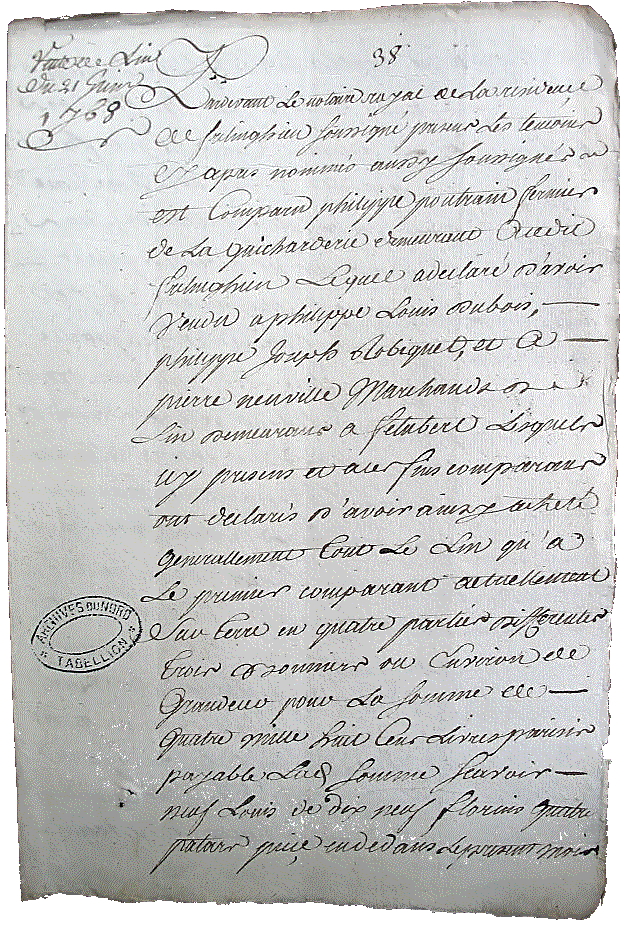 Vente de Lin
du 21 Juin
1768
38
Pardevant Le notaire royal de la residence
de frelinghien soussigné presens Les temoins
cy apres nommés aussy soussignés
est Comparu philippe poutrain fermier
de La Guicharderie demeurant audit
frelinghien Lequel a declaré d'avoir
vendu a philippe Louis Dubois,
philippe Joseph Robiquet, et a
pierre neuville Marchands de
Lin demeurans a Lesquels
icy presens et a ces fins comparans
ont declarés d'avoir aussy acheté
generallement tout Le Lin qu'a
Le premier comparant actuellement
Sur terre en quatre parties differentes
trois bonniers ou Environ de
Grandeur pour La somme de
quatre mille huit Cens Livres parisis
payable Lad somme scavoir
neuf Louis de dix neuf florins quatre
patars piece endedans Le present mois
ARCHIVES DU NORD
TABELLION